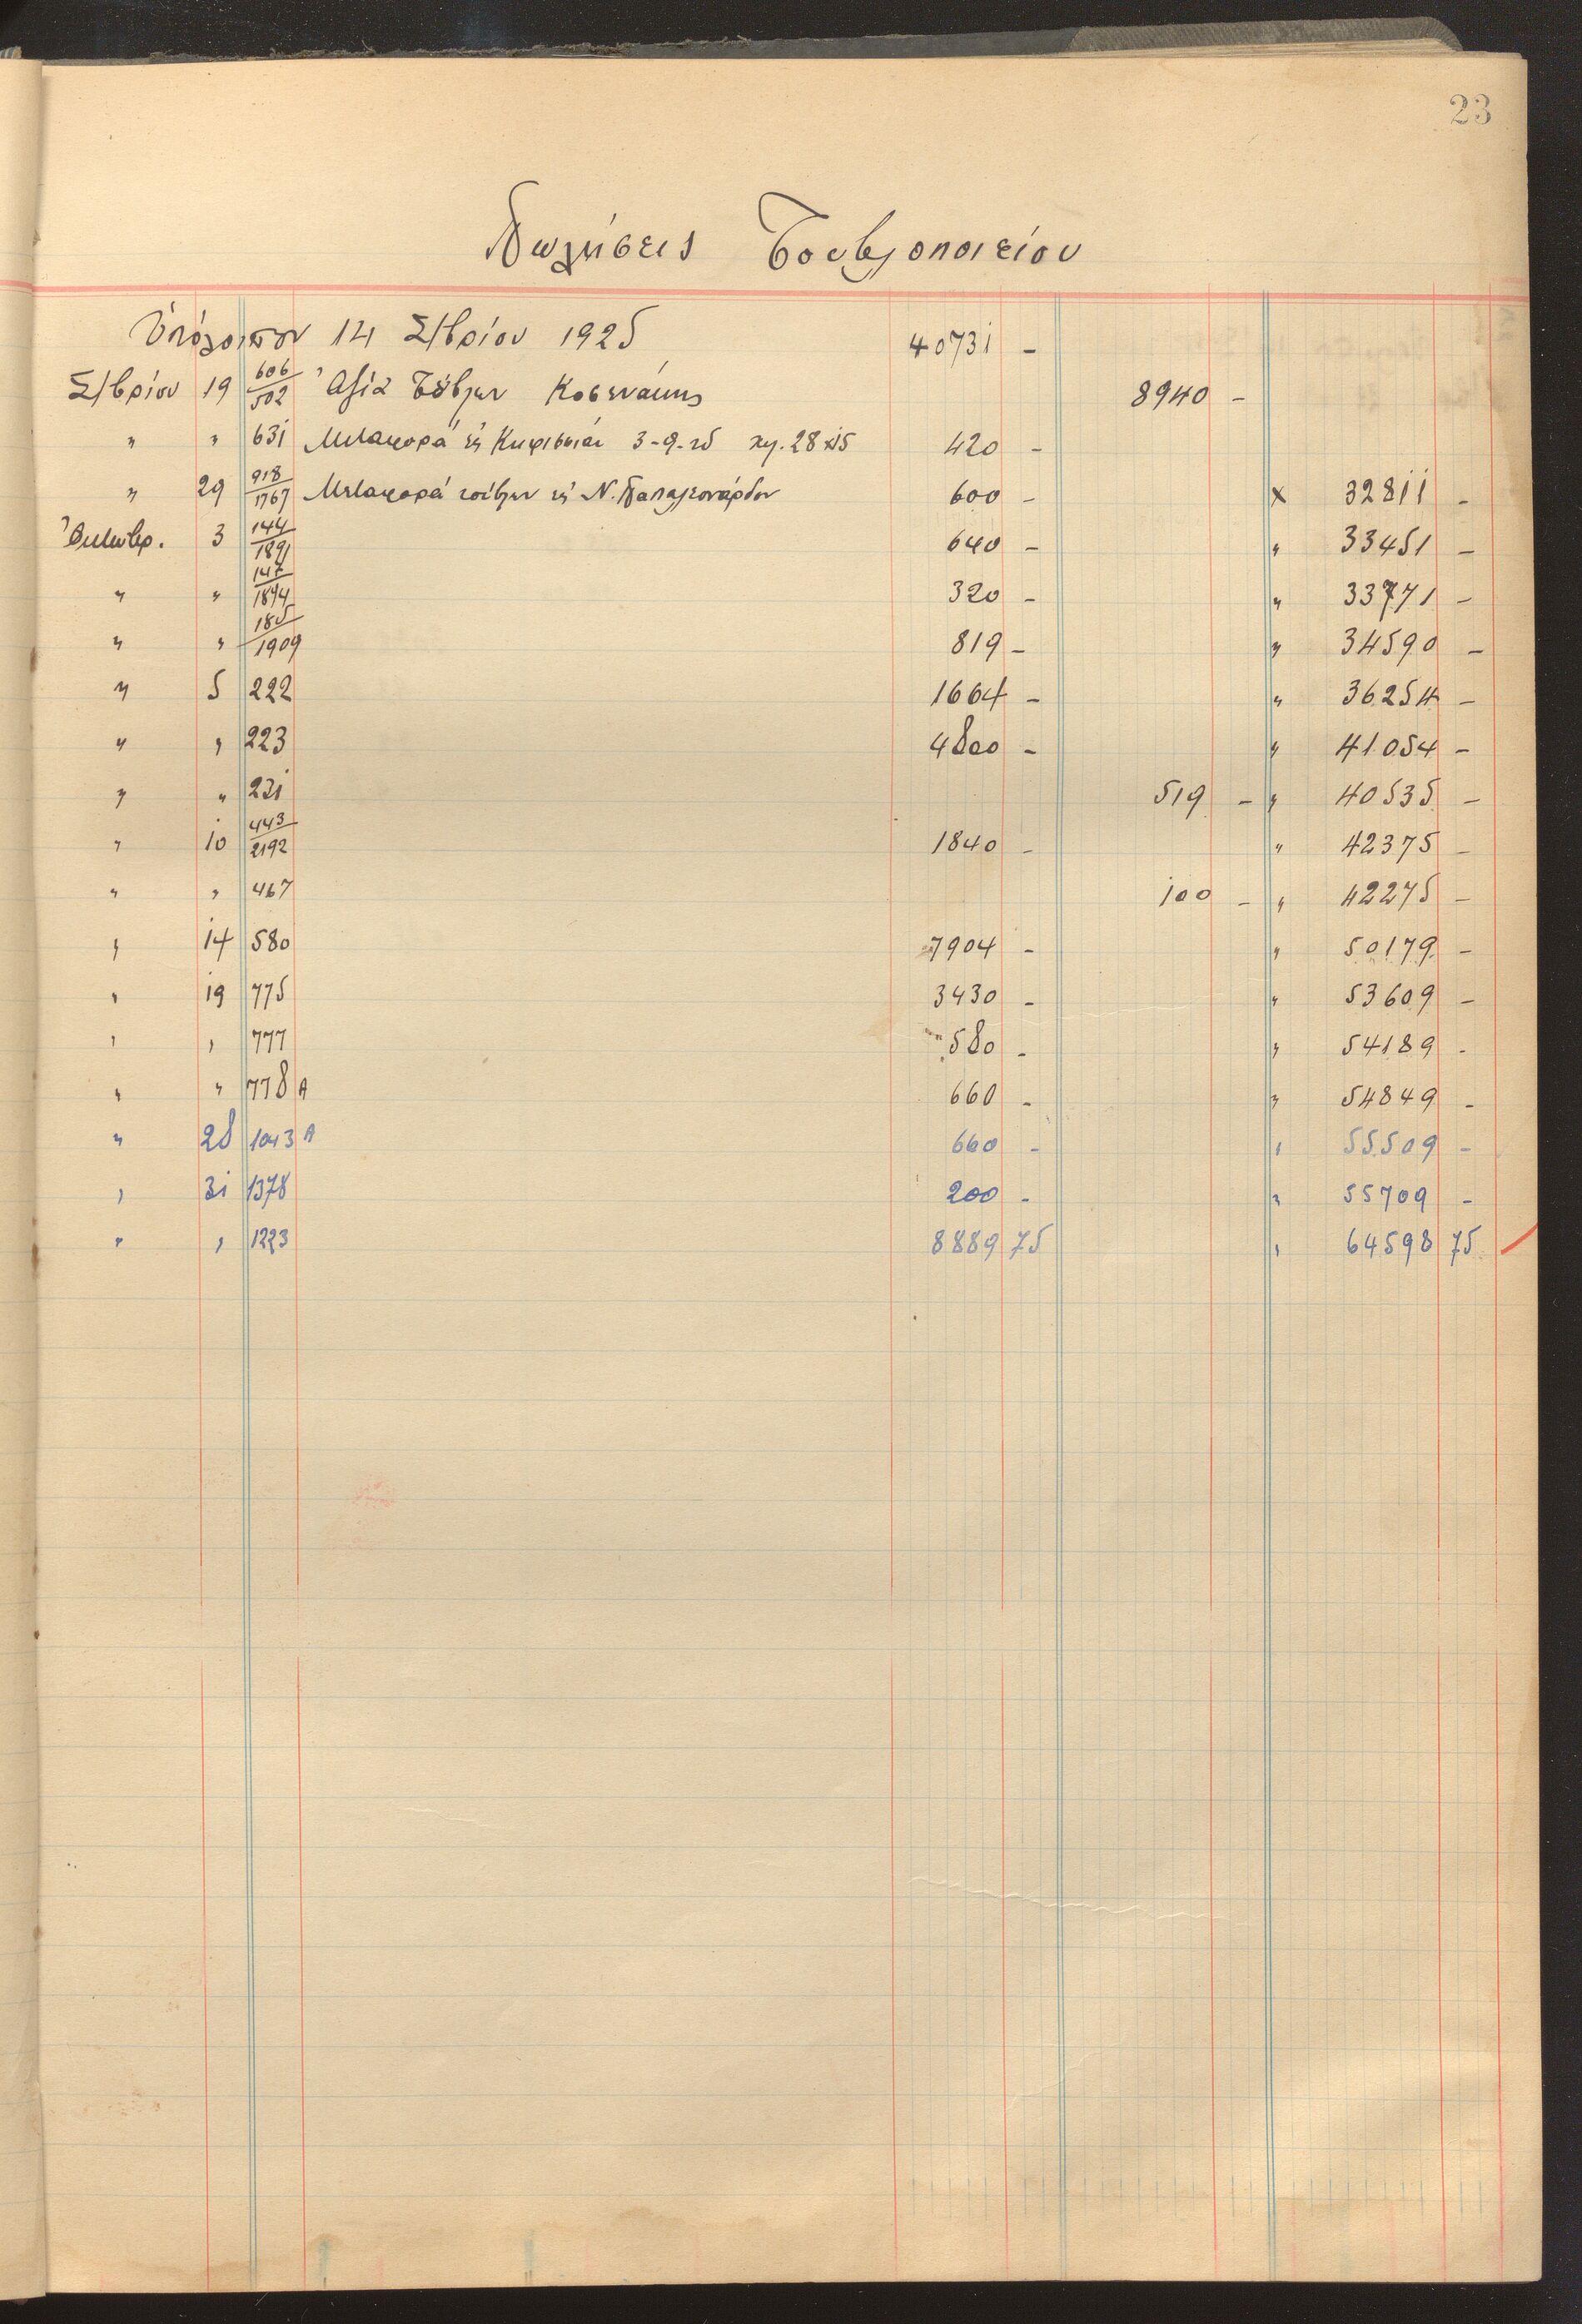 23
Πωλήσεις Τουβλοποιείου
Ὑπόλοιπον 14 Σ/βρίου 1925 40731 -
Σ/βρίου 19 606/502 Ἀξία Τούβλων 8940 -
" " 631 Μεταφορά εἰς Κηφισσιάν 3-9-25 420 -
" 29 918/1767 Μεταφορά τούβλων εἰς Ν. Παπαλεονάρδον 600 - x 32811 -
Ὀκτωβρ. 3 144/1891 640 - " 33451 -
" " 147/1894 320 - " 33771 -
" " 185/1909 819 - " 34590 -
" 5 222 1664 - " 36254 -
" " 223 4800 - " 41054 -
" " 231 519 - " 40535 -
" 10 443/2192 1840 - " 42375 -
" " 467 100 - " 42275 -
" 14 580 7904 - " 50179 -
" 19 775 3430 - " 53609 -
" " 777 580 - " 54189 -
" " 778 A 660 - " 54849 -
" 28 1043 A 660 - " 55509 -
" 31 1378 200 - " 55709 -
" " 1223 8889 75 " 64598 75